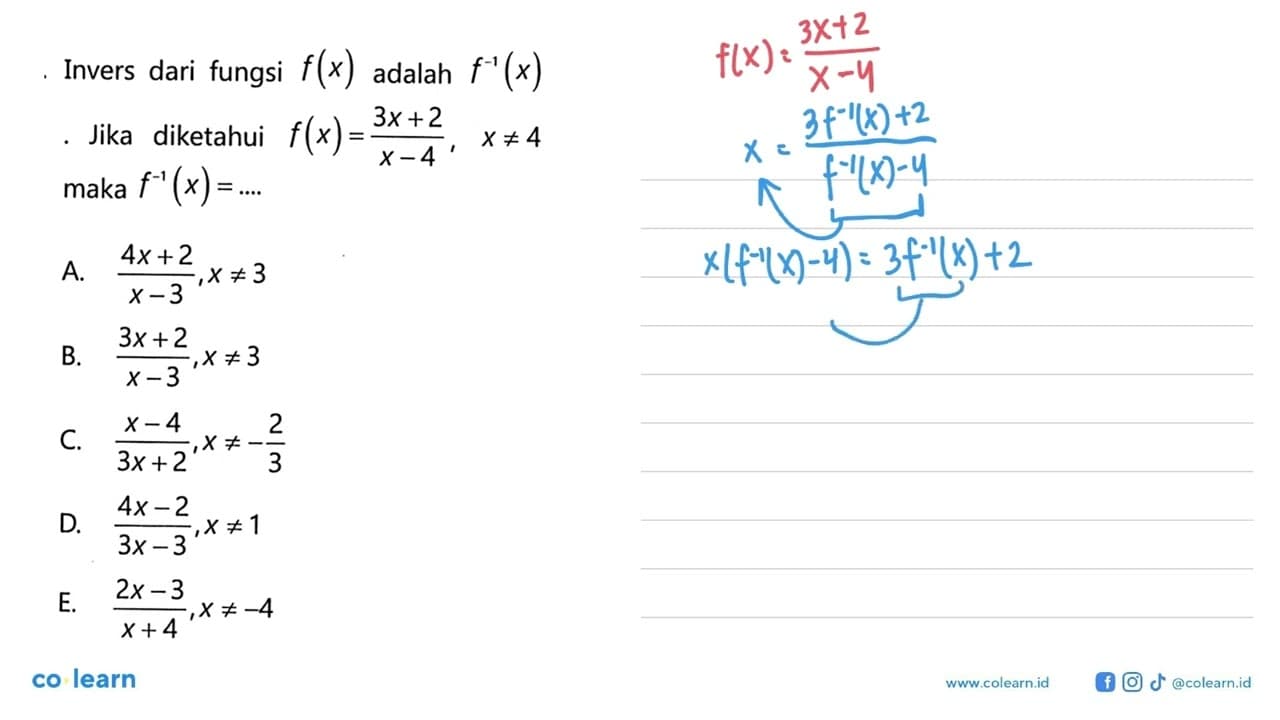 . Invers dari fungsi f(x) adalah f⁻¹(x)
. Jika diketahui f(x) = (3x + 2)/(x − 4), x ≠ 4
maka f⁻¹(x) = ....
A. (4x + 2)/(x − 3), x ≠ 3
B. (3x + 2)/(x − 3), x ≠ 3
C. (x − 4)/(3x + 2), x ≠ −2/3
D. (4x − 2)/(3x − 3), x ≠ 1
E. (2x − 3)/(x + 4), x ≠ −4
f(x) = (3x + 2)/(x − 4)
x = (3f⁻¹(x) + 2)/(f⁻¹(x) − 4)
x(f⁻¹(x) − 4) = 3f⁻¹(x) + 2
co learn
www.colearn.id
@colearn.id